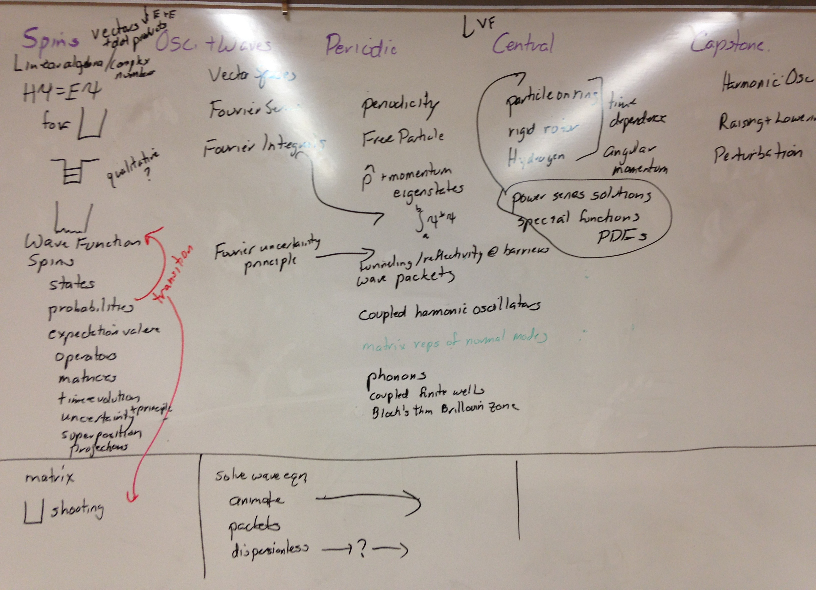 Spins
vectors E+E
+dot products
Linear algebra/complex
number
Hψ=Eψ
for
qualitative
?
Wave Function
Spins
states
probabilities
transition
expectation value
operators
matrices
time evolution
uncertainty principle
superposition
projections
matrix
shooting
Osci+Waves
Vector spaces
Fourier Series
Fourier Integrals
Fourier uncertainty
principle
solve wave eqn
animate
packets
dispersionless → ? →
Periodic
periodicity
Free Particle
p̂ + momentum
eigenstates
∫ψ*ψ
tunneling/reflectivity @ barriers
wave packets
coupled harmonic oscillators
matrix reps of normal modes
phonons
coupled finite wells
Bloch's thm Brillouin Zone
VF
Central
particle on ring
rigid rotor
Hydrogen
time
dependence
angular
momentum
power series solutions
special functions
PDEs
Capstone
Harmonic Osc
Raising + Lowerin
Perturbation